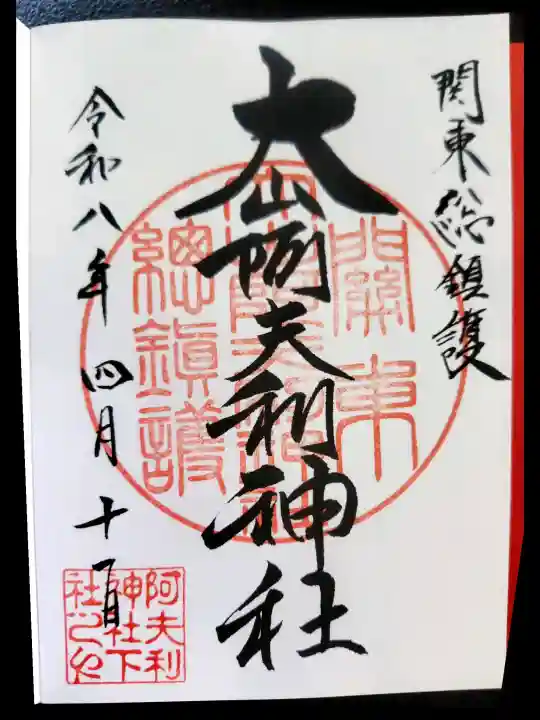 関東総鎮護
大山阿夫利神社
令和八年四月十一日
關東
總鎮護
阿夫利
神社下
社之